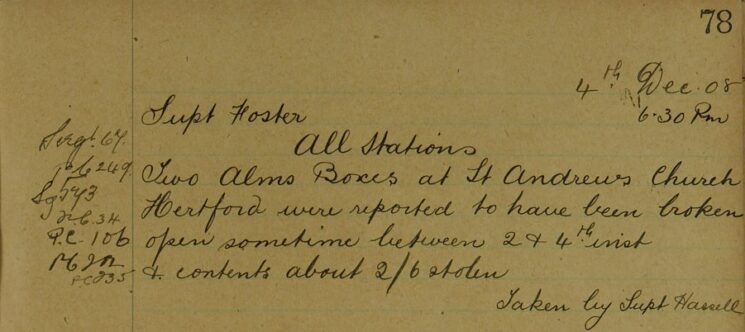 78
4th Dec. 08
6.30 Pm
Supt Foster
All Stations
Two Alms Boxes at St Andrews Church
Hertford were reported to have been broken
open sometime between 2 & 4th inst
& contents about 2/6 stolen
Taken by Supt Hassell
Sergt. 67.
249
Sg 573
34
P.C. 106
PC 235